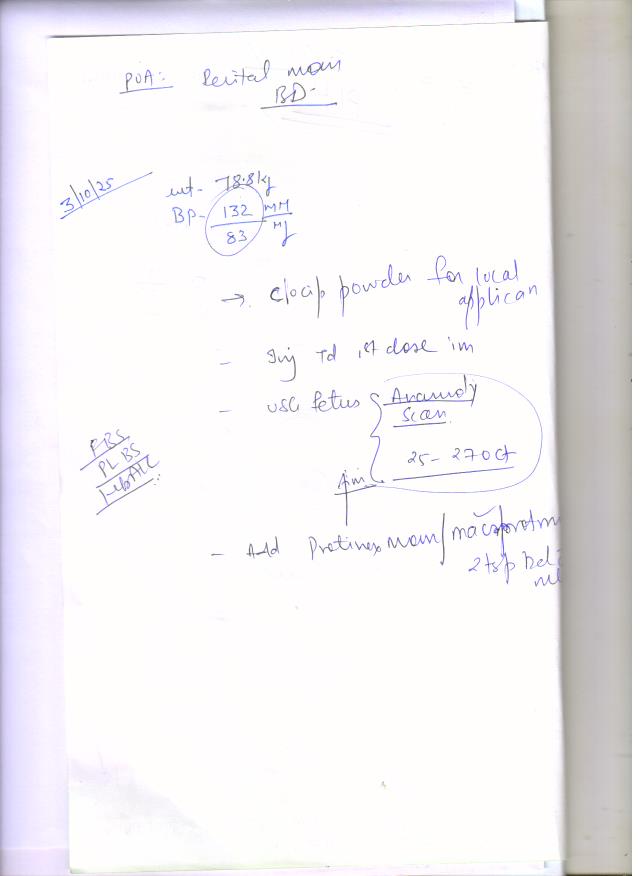 POA:- Revital mom
BD-
3/10/25
wt- 78.8kg
BP- 132 MM
83 Hg
→. Clocip powder for local
applican
- Inj Td 1st dose im
- USG fetus { Anamoly
Scan.
25-27 Oct
FBS
PLBS
HbA1C
- Add Protinex Mom / macroprotm
2 tsp